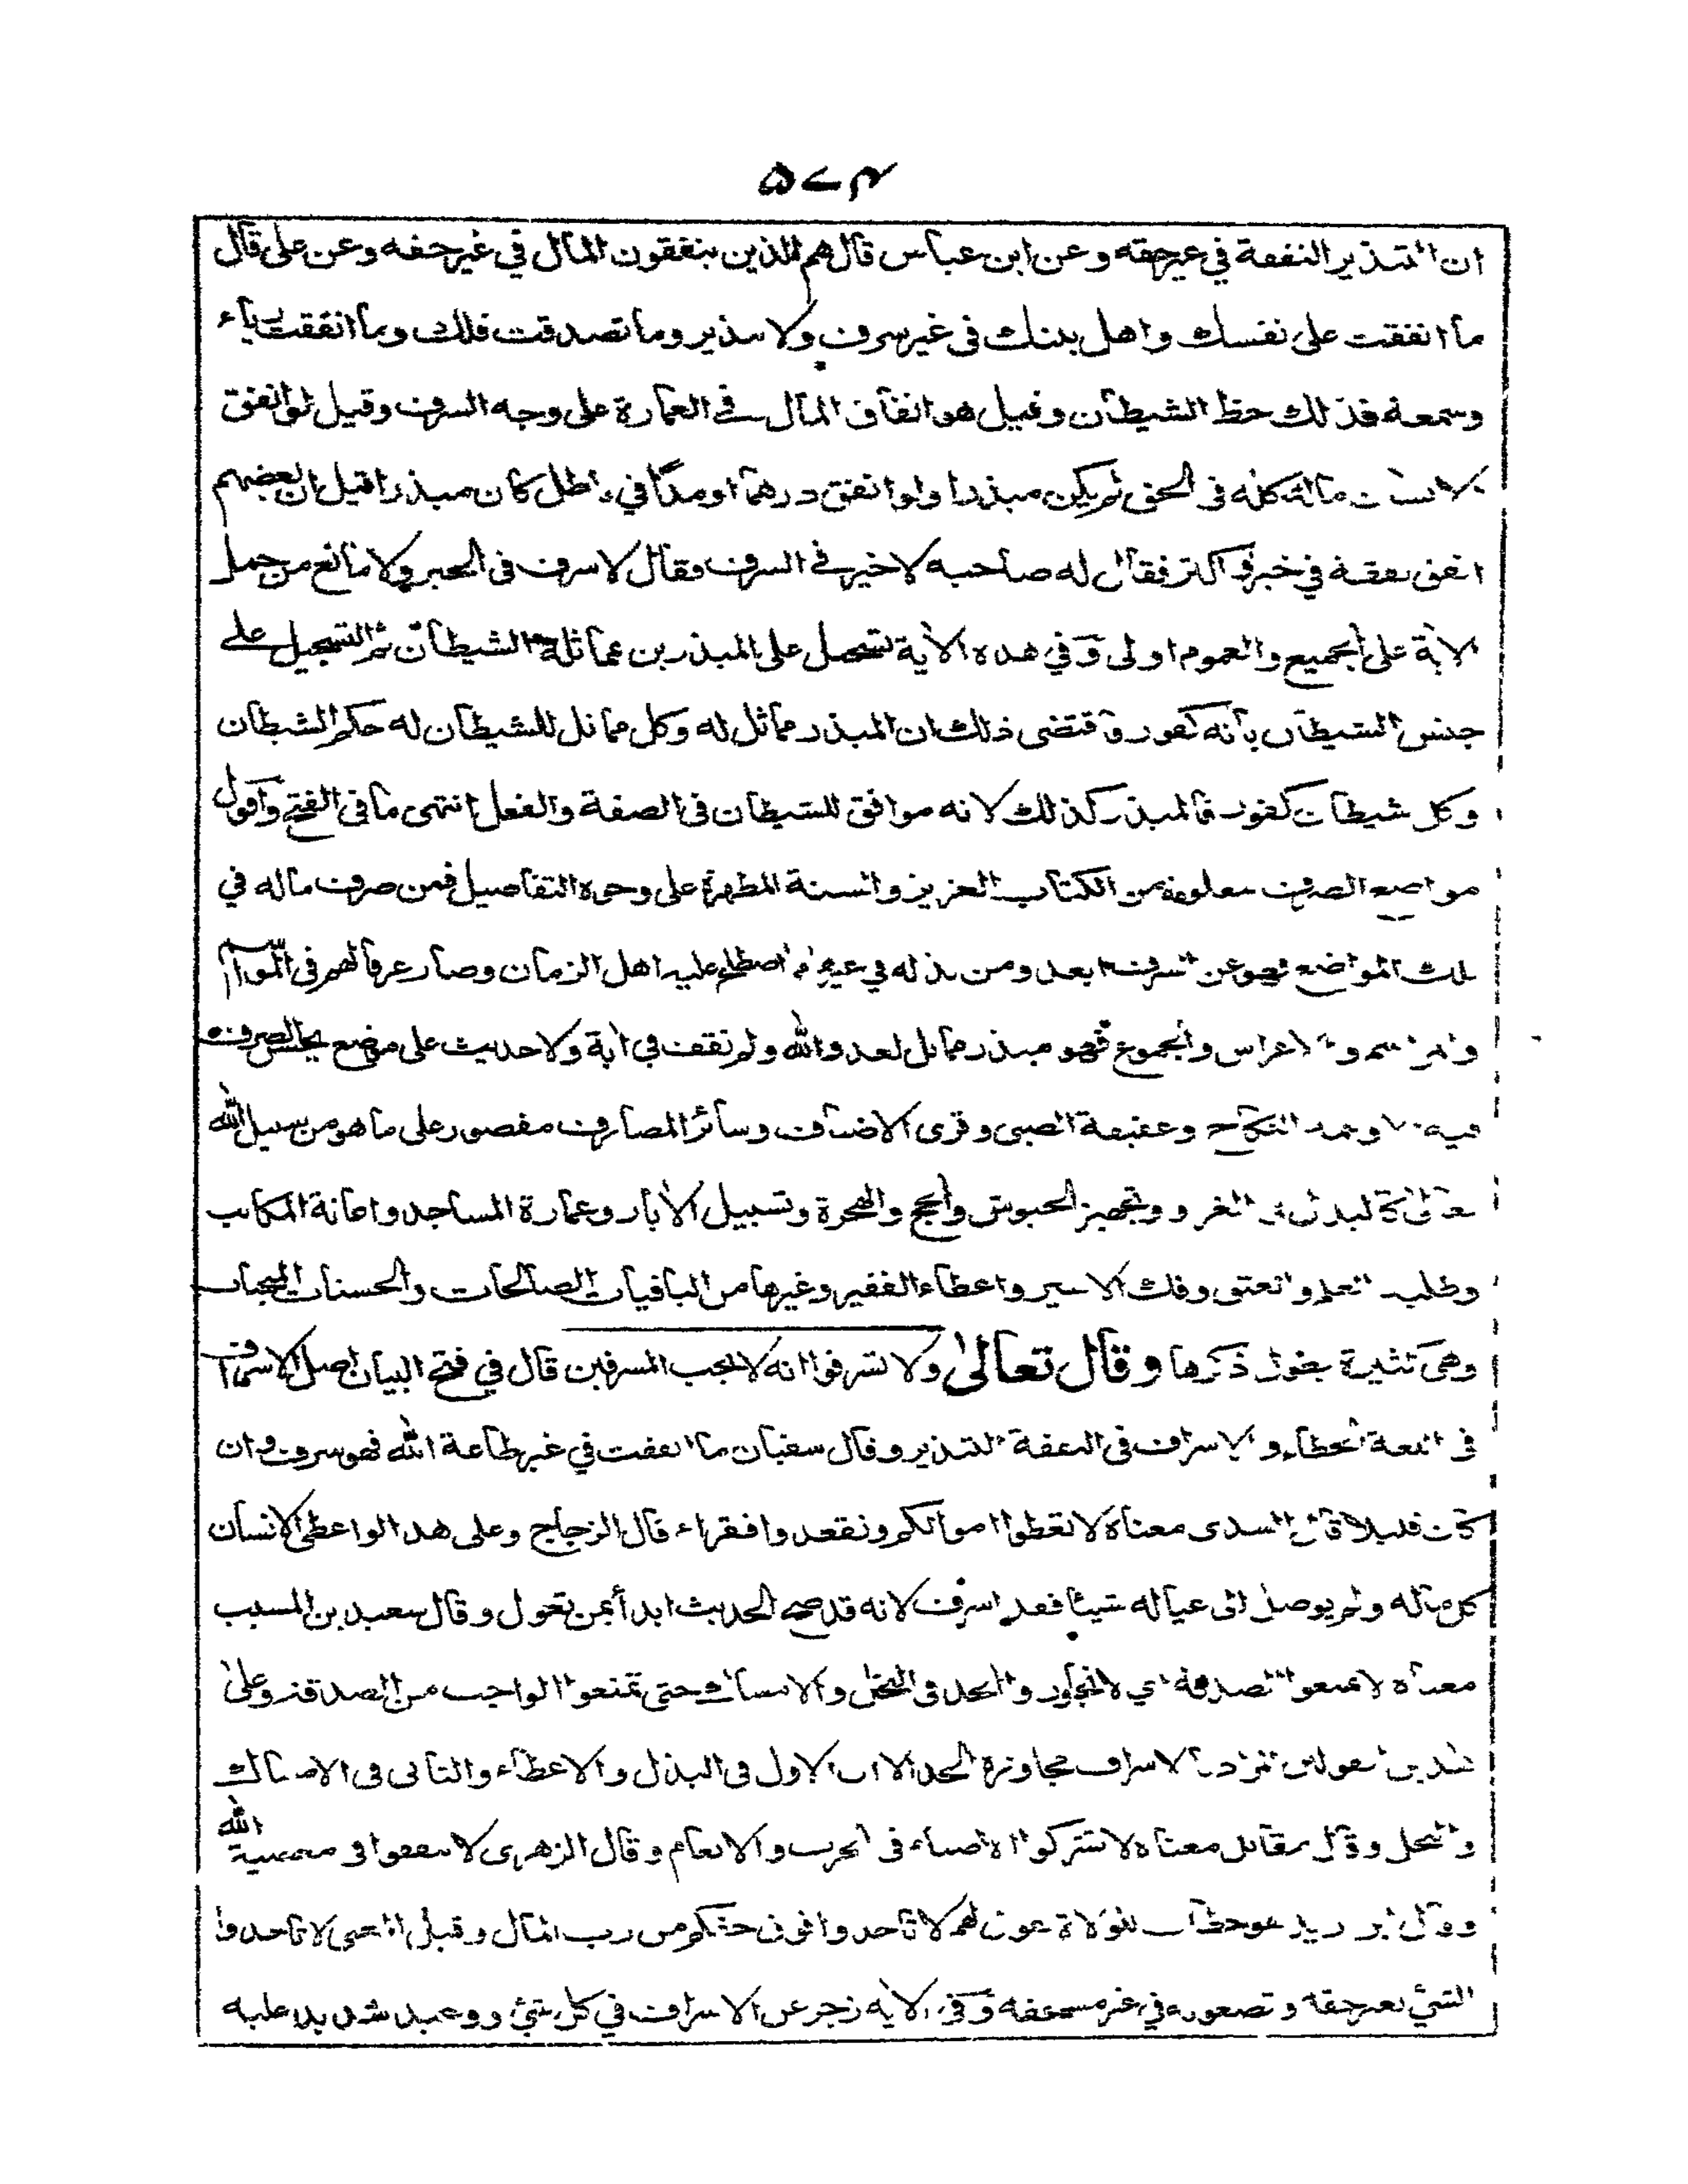 ۵۷۴
ان التبذير النفقة في غير حقه وعن ابن عباس قال هم الذين ينفقون المال في غير حقه وعن علي قال
ما انفقت على نفسك واهل بيتك في غير سرف ولا تبذير وما تصدقت فلك وما انفقت رياء
وسمعة فذلك حظ الشيطان وقيل هو انفاق المال في العمارة على وجه السرف وقيل لو انفق
الانسان ماله كله في الحق لم يكن مبذرا ولو انفق درهما او مدا في باطل كان مبذرا قيل ان بعضهم
انفق نفقة في خير فاكثر فقال له صاحبه لا خير في السرف فقال لا سرف في الخير ولا مانع من حمل
الآية على الجميع والعموم اولى وفي هذه الآية تسجيل على المبذرين بمماثلة الشيطان ثم التسجيل على
جنس الشيطان بانه كفور فاقتضى ذلك ان المبذر مماثل له وكل مماثل للشيطان له حكم الشيطان
وكل شيطان كفور فالمبذر كذلك لانه موافق للشيطان في الصفة والفعل انتهى ما في الفتح واقول
مواضع الصرف معلومة من الكتاب العزيز والسنة المطهرة على وجوه التفاصيل فمن صرف ماله في
تلك المواضع فهو عن السرف ابعد ومن بذله في غير ما اصطلح عليه اهل الزمان وصار عرفا لهم في المواسم
والمراسم والاعراس والجموع فهو مبذر مماثل لعدو الله ولم نقف في آية ولا حديث على موضع يحسن الصرف
فيه الا وليمة النكاح وعقيقة الصبي وقرى الاضياف وسائر المصارف مقصور على ما هو من سبيل الله
تعالى كالبذل في الغزو وتجهيز الجيوش والحج والهجرة وتسبيل الآبار وعمارة المساجد واعانة المكاتب
وطلب العلم والعتق وفك الاسير واعطاء الفقير وغيرها من الباقيات الصالحات والحسنات المنجيات
وهي كثيرة يطول ذكرها وقال تعالى ولا تسرفوا انه لا يحب المسرفين قال في فتح البيان اصل الاسراف
في اللغة الخطاء والاسراف في النفقة التبذير وقال سفيان ما انفقت في غير طاعة الله فهو سرف وان
كان قليلا قال السدي معناه لا تعطوا اموالكم وتقعدوا فقراء قال الزجاج وعلى هذا لو اعطى الانسان
كل ماله ولم يوصل الى عياله شيئا فقد اسرف لانه قد صح الحديث ابدأ بمن تعول وقال سعيد بن المسيب
معناه لا تمنعوا الصدقة اي لا تجاوزوا الحد في البخل والامساك حتى تمنعوا الواجب من الصدقة وعلى
هذين القولين المراد بالاسراف مجاوزة الحد الا ان الاول في البذل والاعطاء والثاني في الامساك
والبخل وقال مقاتل معناه لا تشركوا الاصنام في الحرث والانعام وقال الزهري لا تنفقوا في معصية الله
وقال ابن زيد هو خطاب للولاة يقول لهم لا تاخذوا فوق حقكم من رب المال وقيل المعنى لا تاخذوا
الشيء بغير حقه وتضعونه في غير مستحقه وفي الآية زجر عن الاسراف في كل شيء ووعيد شديد عليه